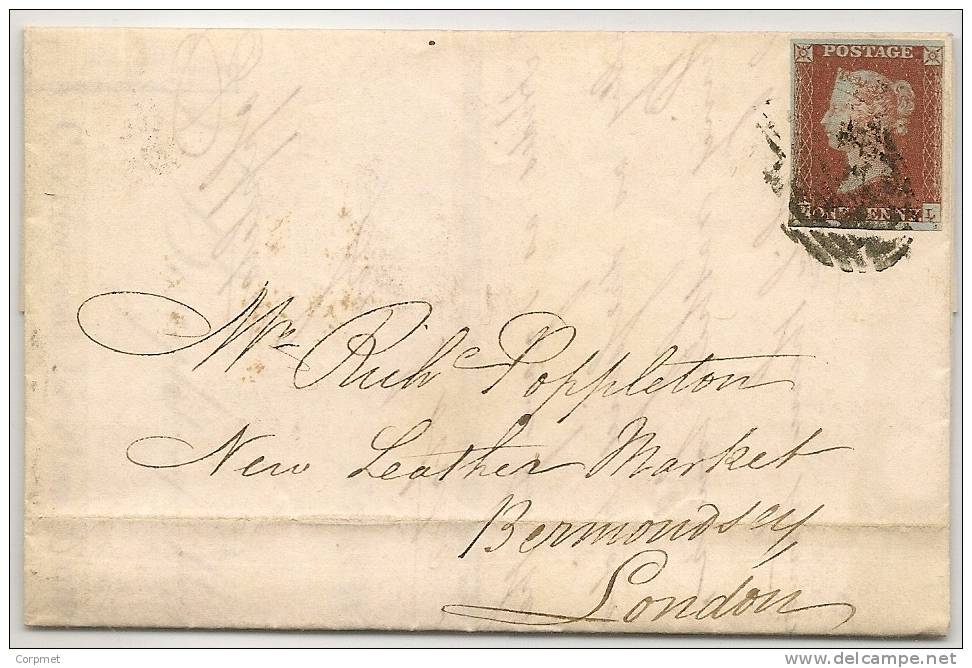 POSTAGE
ONE PENNY
L
Mr. Richd Poppleton
New Leather Market
Bermondsey
London
Corpmet
delcampe.net